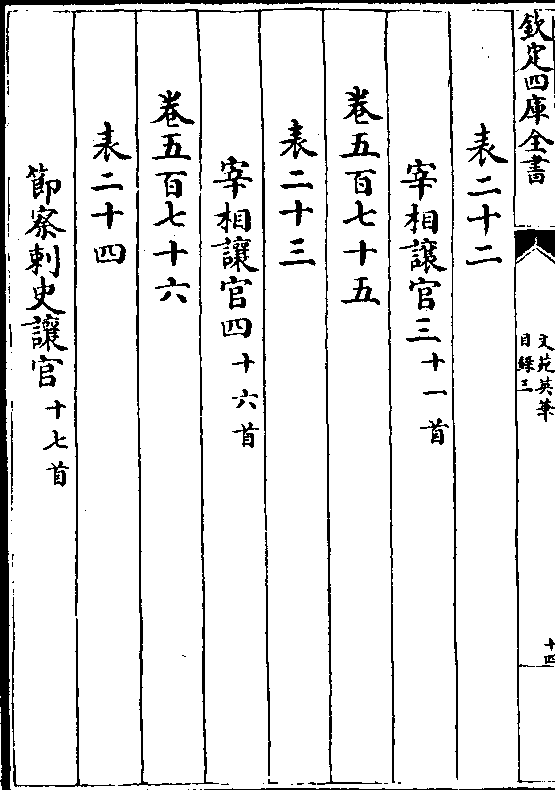 欽定四庫全書
文苑英華
目録三
十四
表二十二
宰相讓官三十一首
卷五百七十五
表二十三
宰相讓官四十六首
卷五百七十六
表二十四
節察刺史讓官十七首